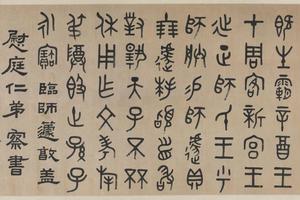 既生霸辛酉王
才周客新宮王
正師氏王
師朕易師遽
遽拜稽首敢
對揚天子不
休用乍文考
叔𣪘世孫子
永寶 臨師遽敦蓋
慰庭仁弟察書